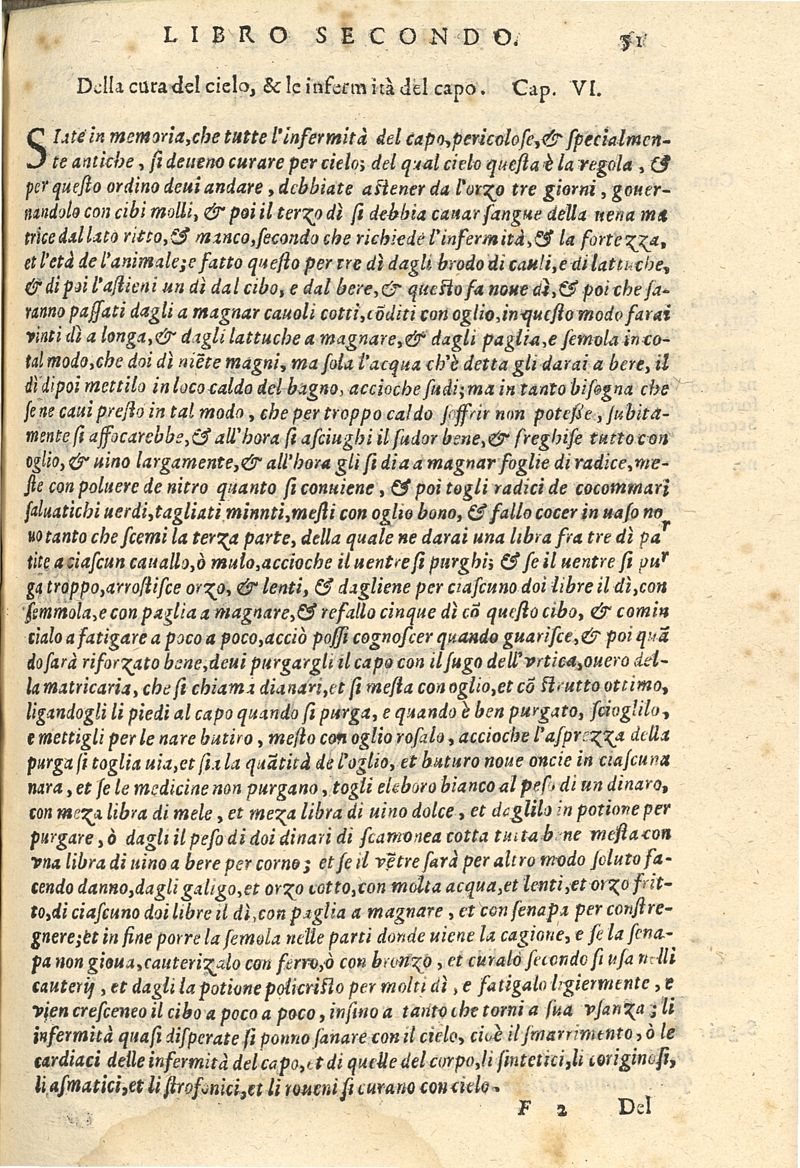 LIBRO SECONDO. 51
Della cura del cielo, & le infermità del capo. Cap. VI.
SIate in memoria, che tutte l'infermità del capo, pericolose, & specialmen-
te antiche, si deueno curare per cielo; del qual cielo questa è la regola, &
per questo ordino deui andare, debbiate astener da l'orzo tre giorni, gouer-
nandolo con cibi molli, & poi il terzo dì si debbia cauar sangue della uena ma
trice dal lato ritto, & manco, secondo che richiede l'infermità, & la fortezza,
et l'età de l'animale; e fatto questo per tre dì dagli brodo di cauli, e di lattuche,
& di poi l'astieni un dì dal cibo, e dal bere, & questo fa noue dì, & poi che sa-
ranno passati dagli a magnar cauoli cotti, cõditi con oglio, in questo modo farai
vinti dì a longa, & dagli lattuche a magnare, & dagli paglia, e semola in co-
tal modo, che doi dì niẽte magni, ma sola l'acqua ch'è detta gli darai a bere, il
dì dipoi mettilo in loco caldo del bagno, accioche sudi; ma in tanto bisogna che
se ne caui presto in tal modo, che per troppo caldo soffrir non potesse, subita-
mente si affocarebbe, & all'hora si asciughi il sudor bene, & freghise tutto con
oglio, & uino largamente, & all'hora gli si dia a magnar foglie di radice, me-
ste con poluere de nitro quanto si conuiene, & poi togli radici de cocommari
saluatichi uerdi, tagliati minnti, mesti con oglio bono, & fallo cocer in uaso no
uo tanto che scemi la terza parte, della quale ne darai una libra fra tre dì par
tite a ciascun cauallo, ò mulo, accioche il uentre si purghi; & se il uentre si pur
ga troppo, arrostisce orzo, & lenti, & dagliene per ciascuno doi libre il dì, con
semmola, e con paglia a magnare, & refallo cinque dì cõ questo cibo, & comin
cialo a fatigare a poco a poco, acciò possi cognoscer quando guarisce, & poi quã
do sarà riforzato bene, deui purgargli il capo con il sugo dell'vrtica, ouero del-
la matricaria, che si chiama dianari, et si mesta con oglio, et cõ strutto ottimo,
ligandogli li piedi al capo quando si purga, e quando è ben purgato, scioglilo,
e mettigli per le nare butiro, mesto con oglio rosalo, accioche l'asprezza della
purga si toglia uia, et sia la quãtità de l'oglio, et buturo noue oncie in ciascuna
nara, et se le medicine non purgano, togli eleboro bianco al peso di un dinaro,
con meza libra di mele, et meza libra di uino dolce, et daglilo in potione per
purgare, ò dagli il peso di doi dinari di scamonea cotta tutta bene mesta con
vna libra di uino a bere per corno; et se il vẽtre sarà per altro modo soluto fa-
cendo danno, dagli galigo, et orzo cotto, con molta acqua, et lenti, et orzo frit-
to, di ciascuno doi libre il dì, con paglia a magnare, et con senapa per constre-
gnere; et in fine porre la semola nelle parti donde uiene la cagione, e se la sena-
pa non gioua, cauterizalo con ferro, ò con bronzo, et curalo secondo si usa nelli
cauterij, et dagli la potione policristo per molti dì, e fatigalo ligiermente, e
vien cresceneo il cibo a poco a poco, insino a tanto che torni a sua vsanza; li
infermità quasi disperate si ponno sanare con il cielo, cioè il smarrimento, ò le
cardiaci delle infermità del capo, et di quelle del corpo, li sintetici, li coriginosi,
li asmatici, et li strofonici, et li roueni si curano con cielo.
F 2 Del